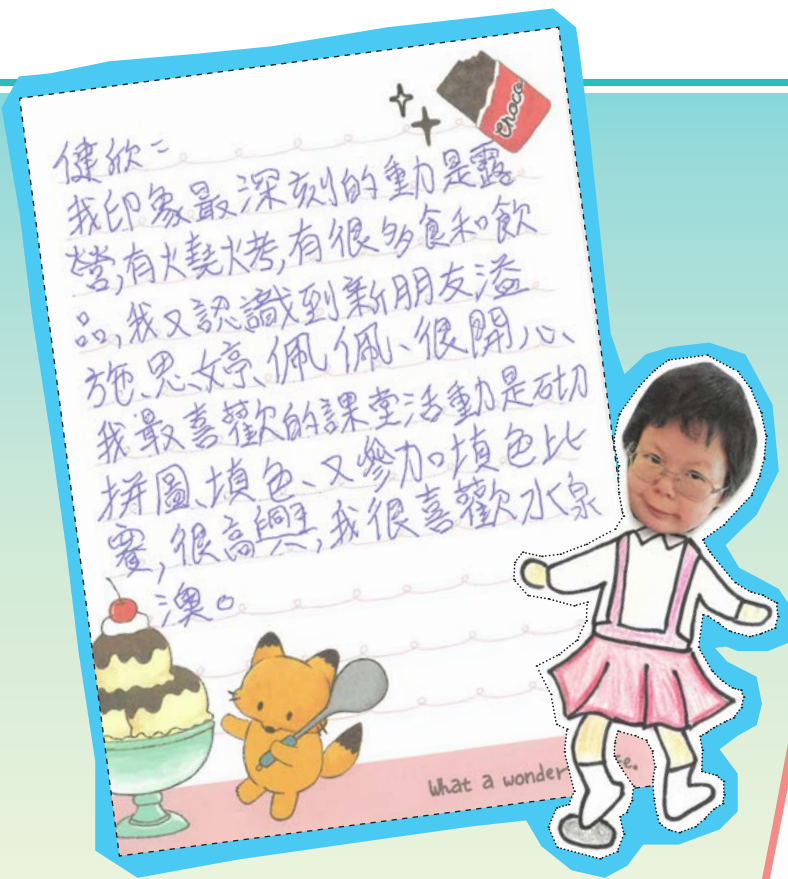 choco
健欣：
我印象最深刻的動是露
營,有火燒烤,有很多食和飲
品,我又認識到新朋友溢
施、思婷、佩佩、很開心、
我最喜歡的課堂活動是砌
拼圖、填色、又參加填色比
賽,很高興,我很喜歡水泉
澳。
What a wonder
e.